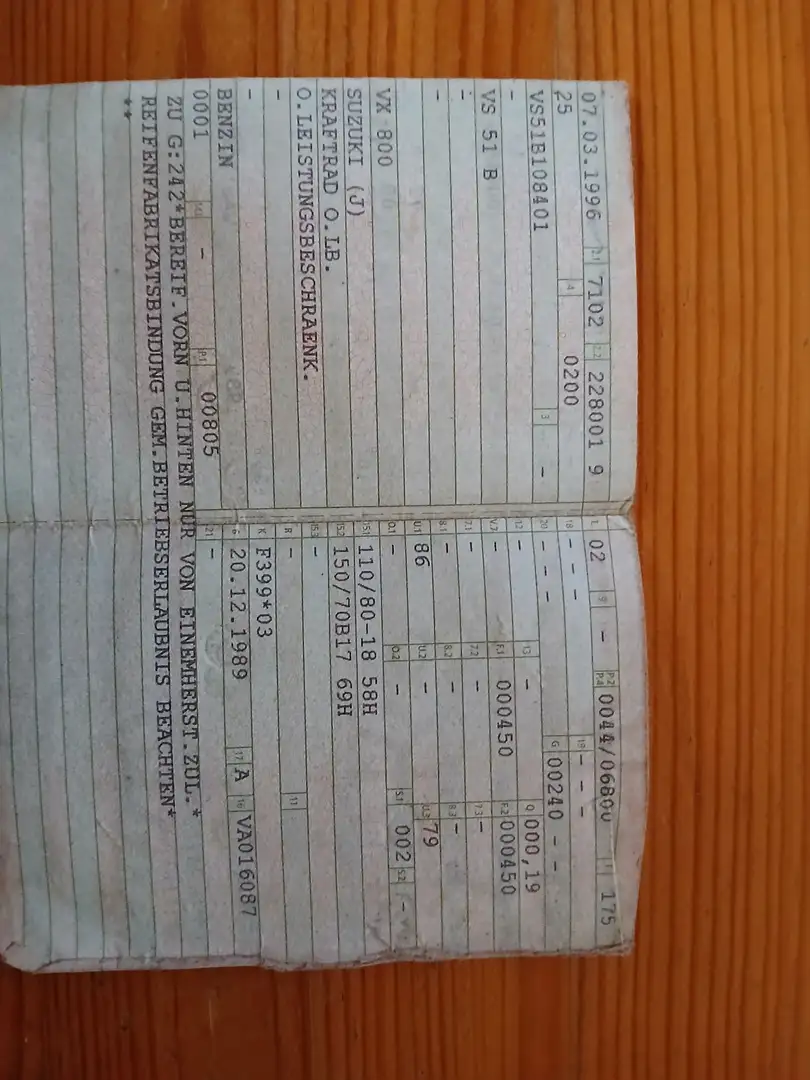 07.03.1996 2.1 7102 2.2 228001 9
25 4 0200
VS51B108401 3 -
-
VS 51 B
-
-
VX 800
SUZUKI (J)
KRAFTRAD O.LB.
O.LEISTUNGSBESCHRAENK.
-
-
BENZIN
0001 - P.1 00805
L 02 9 - P.2 P.4 0044/06800 T 175
18 - - - 19 - - -
20 - - - G 00240 - -
12 - 13 - Q 000,19
V.7 - F.1 000450 F.2 000450
7.1 - 7.2 - 7.3 -
8.1 - 8.2 - 8.3 -
U.1 86 U.2 - U.3 79
O.1 - O.2 - S.1 002 S.2 -
15.1 110/80-18 58H
15.2 150/70B17 69H
15.3 -
R - 11
K F399*03
6 20.12.1989 17 A 16 VA016087
21 -
ZU G:242*BEREIF.VORN U.HINTEN NUR VON EINEMHERST.ZUL.*
REIFENFABRIKATSBINDUNG GEM.BETRIEBSERLAUBNIS BEACHTEN*
**